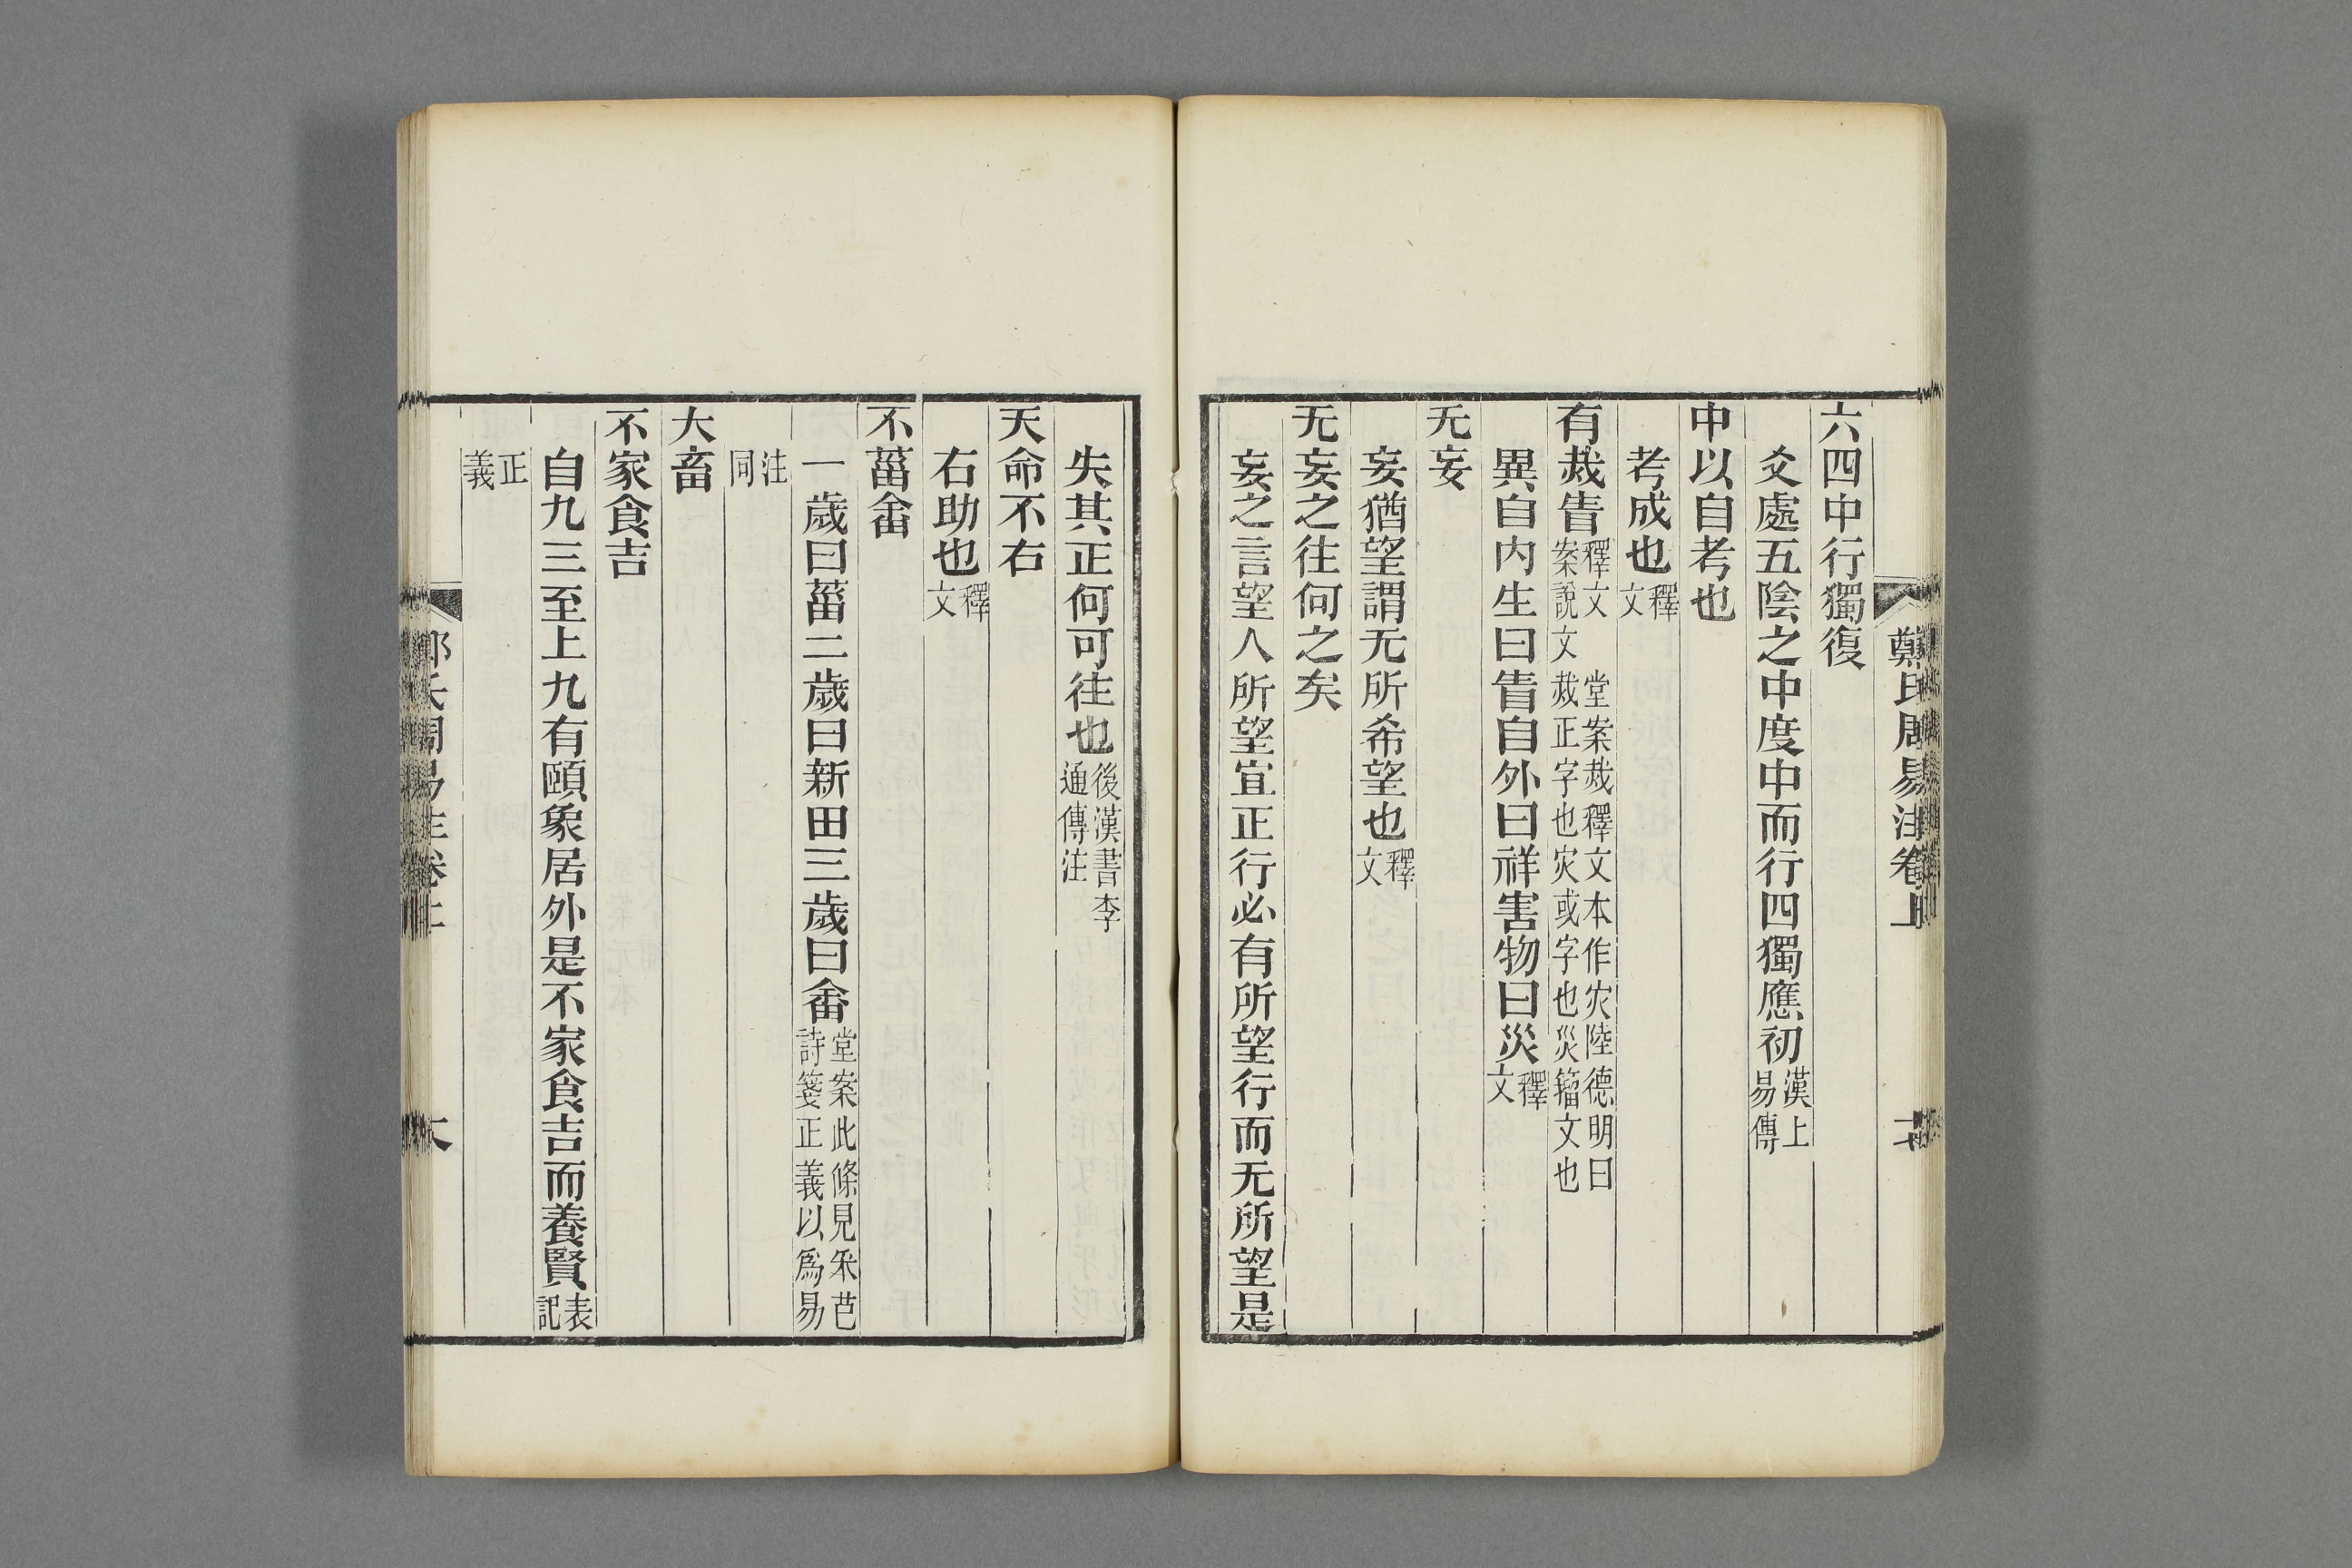 鄭氏周易注卷上
六四中行獨復
爻處五陰之中度中而行四獨應初漢上易傳
中以自考也
考成也釋文
有烖眚釋文案說文 烖正字也灾或字也災籀文也堂案烖釋文本作灾陸德明曰
異自内生曰眚自外曰祥害物曰災釋文
无妄
妄猶望謂无所希望也釋文
无妄之往何之矣
妄之言望人所望宜正行必有所望行而无所望是
失其正何可往也後漢書李通傳注
天命不右
右助也釋文
不菑畬
一歲曰菑二歲曰新田三歲曰畬堂案此條見采芑詩箋正義以爲易
注同
大畜
不家食吉
自九三至上九有頤象居外是不家食吉而養賢表記
正義